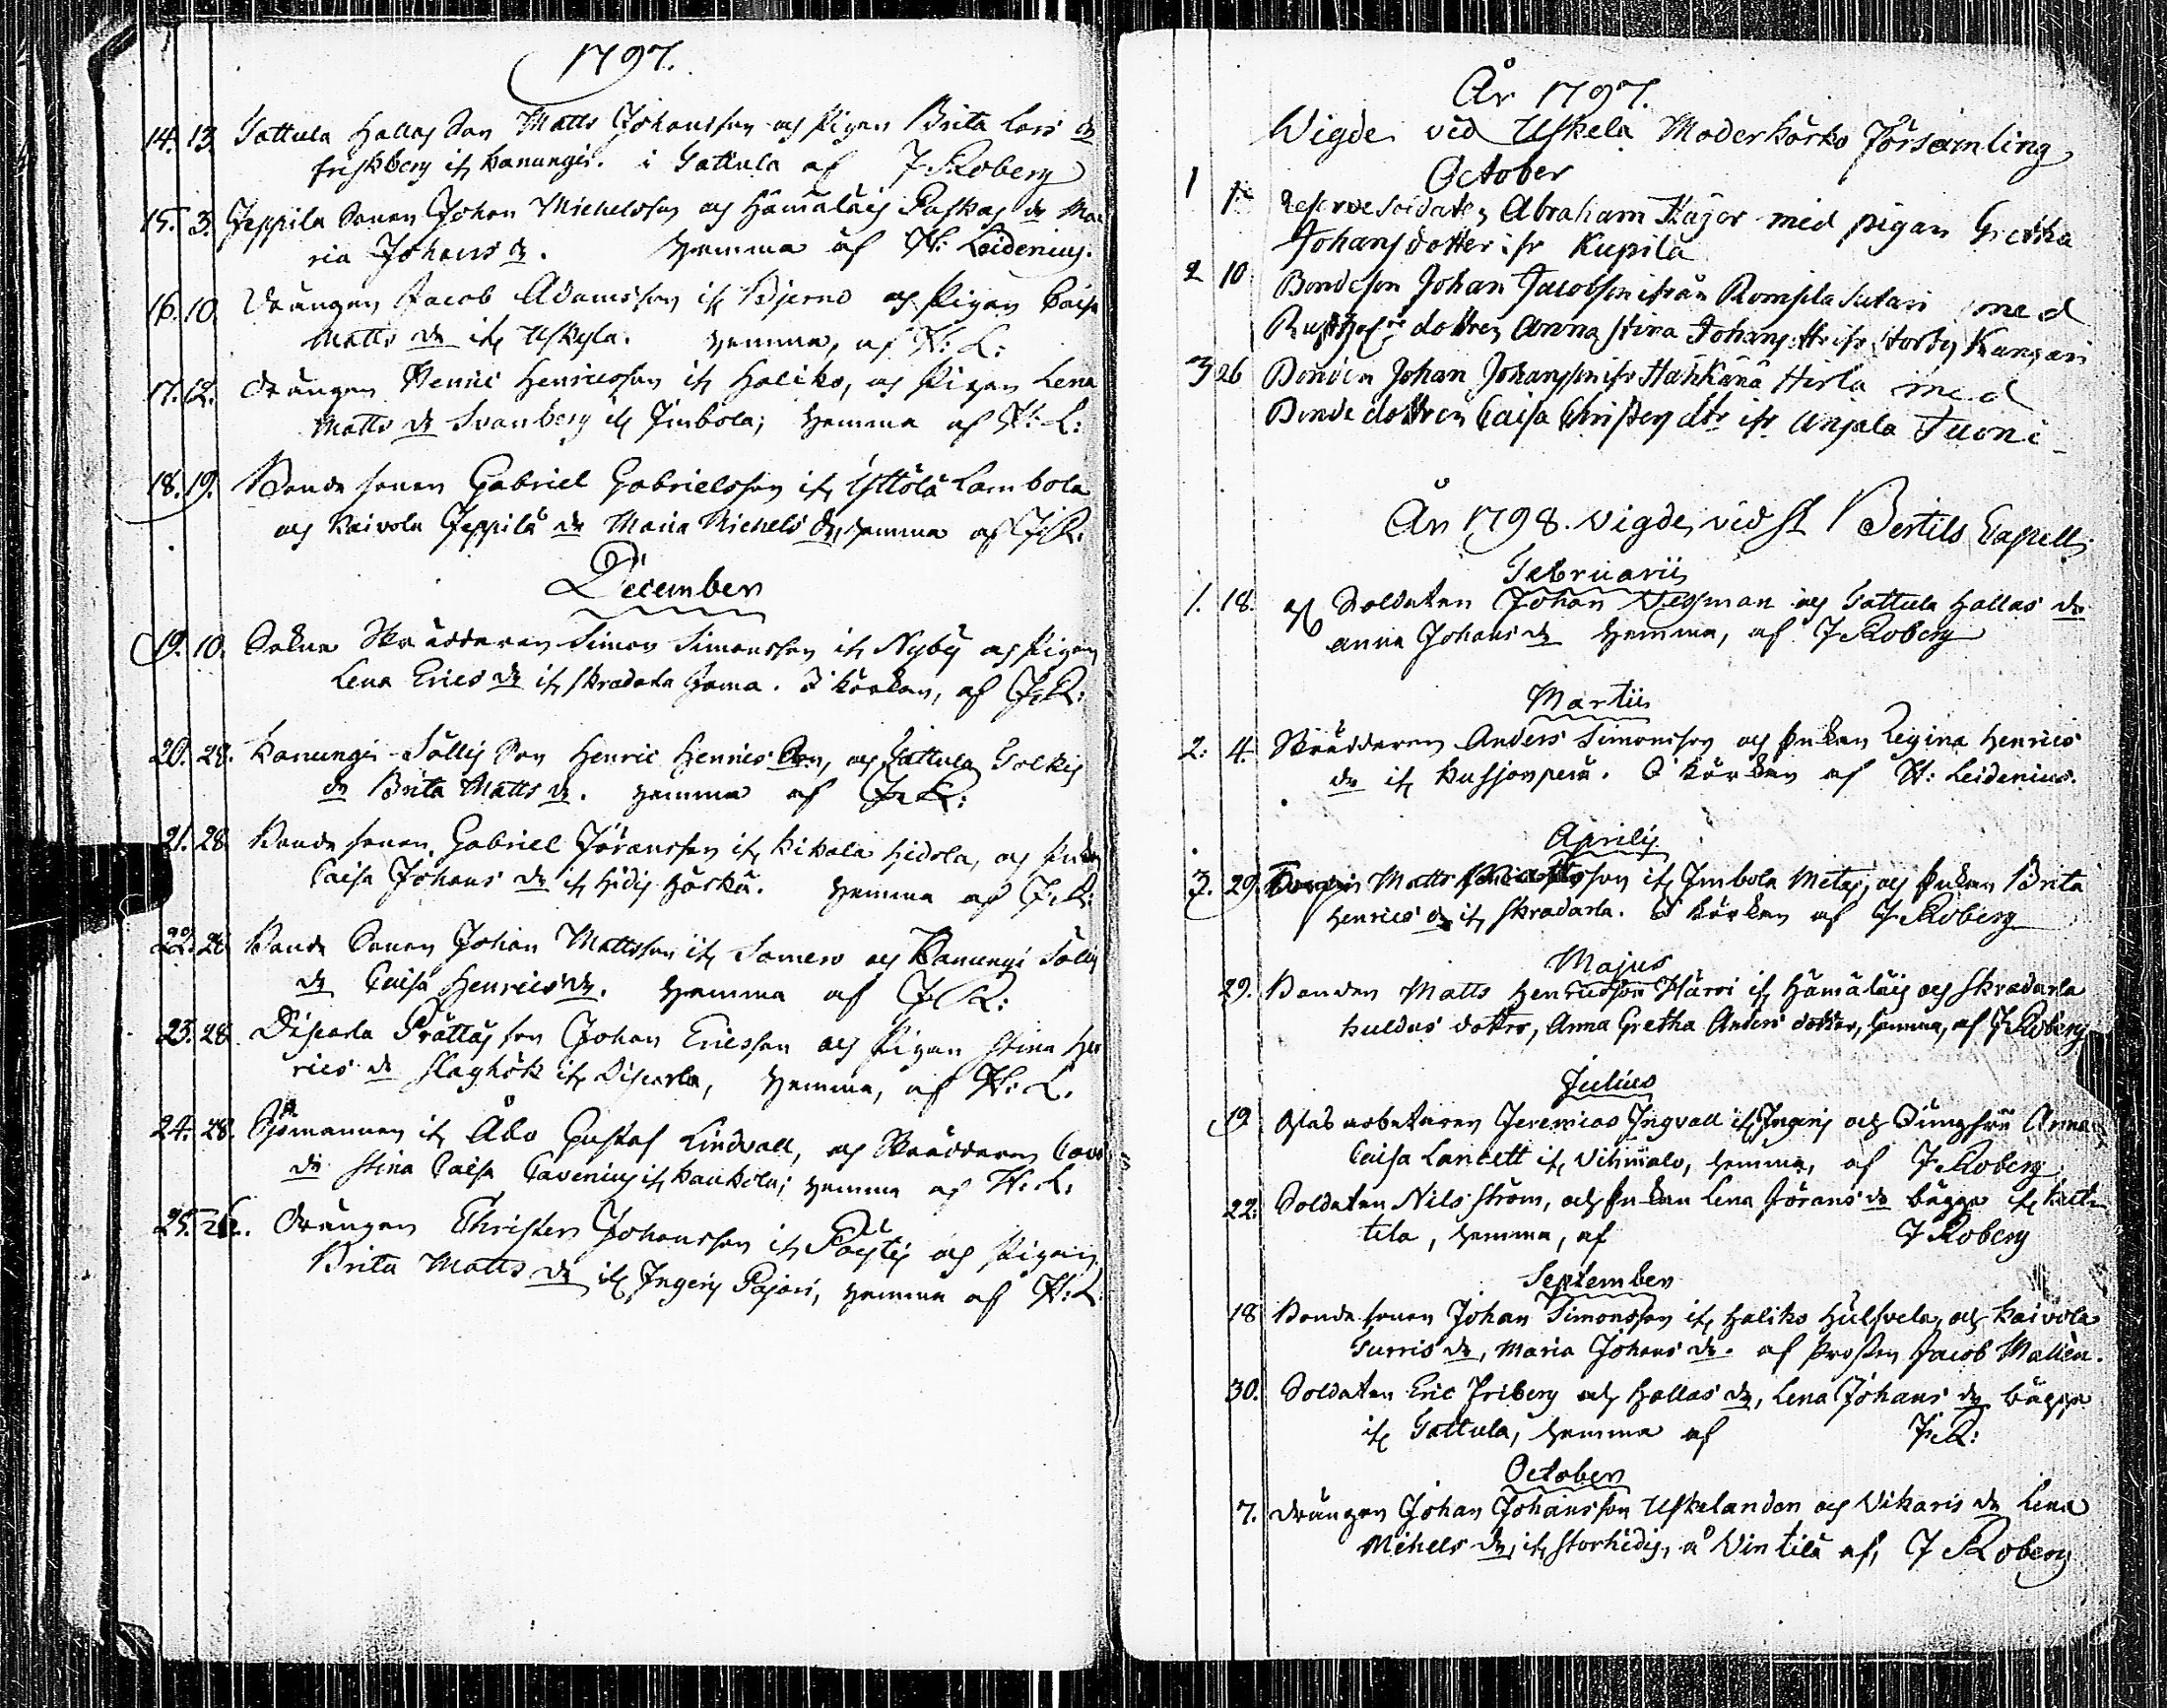 1797.
14. 13. Tattula Hallas Son Matts Johansson och Pigan Brita Lars dr
friskberg ifr kanungis. i Tattula af J Roberg
15. 3. Jeppila Sonen Johan Michelsson och Hämäläis Paskas dr Ma
ria Johans dr. Hemma af H: Leidenius.
16. 10. Drängen Jacob Adamsson ifr Bjerno och Pigan Caisa
Matts dr ifr Uskela. Hemma, af H: L:
17. 12. Drängen Henric Henricsson ifr Haliko, och Pigan Lena
Matts dr Svanberg ifr Inbola; Hemma af H: L:
18. 19. Bonde sonen Gabriel Gabrielsson ifr Yttölä Lambola
och Kaivola Jeppilä dr Maria Michels dr, Hemma af J R.
December
19. 10. Sokne Skräddaren Simon Simonsson ifr Nyby och Pigan
Lena Erics dr ifr Skradarla. I körkan, af J R:
20. 28. Kanungi Sällis Son Henric Henrics Son, och Tattula Tolkis
dr Brita Matts dr. Hemma af J R:
21. 28. Bonde sonen Gabriel Jöransson ifr Kikala Hidola, och
Caisa Johans dr ifr Hidis Härkä. Hemma af J R:
22. 28. Bonde Sonen Johan Mattsson ifr Somero och Kanungi Sälis
dr Caisa Henrics dr. Hemma af J R:
23. 28. Discarla Prättäs son Johan Ericsson och Pigan Stina Hen
rics dr Slaghök ifr Discarla, Hemma, af H: L.
24. 28. Sjömannen ifr Åbo Gustaf Lindvall, och Skräddaren
dr Stina Caisa Cavenius ifr Kaukola; Hemma af H: L:
25. Drängen Christer Johansson ifr Pöytis och Pigan
Brita Matts dr ifr Ingeris Pajari, Hemma af H: L.
År 1797.
Wigde vid Uskela Moderkörko Församling
October
1 1. Reserve soldaten Abraham Kägor med pigan Gretha
Johans dotter ifr Kupila
2 10 Bondeson Johan Jacobson ifrån Romsila Sutari med
dottren Anna Stina Johans ttr ifr Storby Kangari
3 26 Bonden Johan Johansson ifr Hähkänä Hirla med
Bonde dottren Caisa Christers dtr ifr Anjala Tuoni
År 1798. Vigde vid St Bertils Capell
Februarii
1. 18. Soldaten Johan Wessman och Tattula Hallas dr
Anna Johans dr Hemma, af J Roberg
Martii
2. 4. Skräddaren Anders Simonsson och Enkan Regina Henrics
dr ifr Kussjonperä. I Körkan af H: Leidenius.
Aprilis
3. 29. Matts son ifr Inbola Metas, och Enkan Brita
Henrics dr ifr Skradarla. I körkan af J Roberg
Majus
29. Bonden Matts Henricsson Härri ifr Hämäläis och Skradarla
Kuldus dotter, Anna Gretha Anders dotter, hemma, af J Roberg
Julius
19 Glas arbetaren Jeremias Ingvall ifr Ingeris och Jungfru Anna
Caisa Lancett ifr Vihmalo, hemma, af J Roberg
22. Soldaten Nils Ström, och Enkan Lena Jörans dr bägge ifr Katti
tela, hemma, af J Roberg
September
18 Bonde sonen Johan Simonsson ifr Haliko Hulsvela, och Kaivola
Turris dr, Maria Johans dr. af Prosten Jacob Mallén.
30. Soldaten Eric Friberg och Hallas dr, Lena Johans dr bägge
ifr Tattula, hemma af J R:
October
7. Drängen Johan Johansson Uskelandon och Vikaris dr Lena
Mihels dr, ifr Storhidis, å Vintilä af, J Roberg